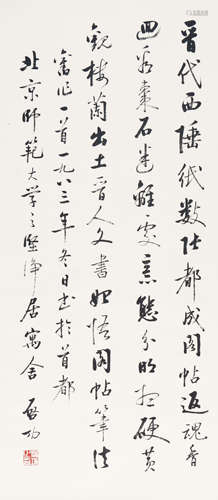 晋代西陲纸数张都成阁帖返魂香
四家枣石迷离处意态分明想硬黄
观楼兰出土晋人文书始悟阁帖笔法
旧作一首一九八三年冬日书于首都
北京师范大学之坚净居寓舍 启功